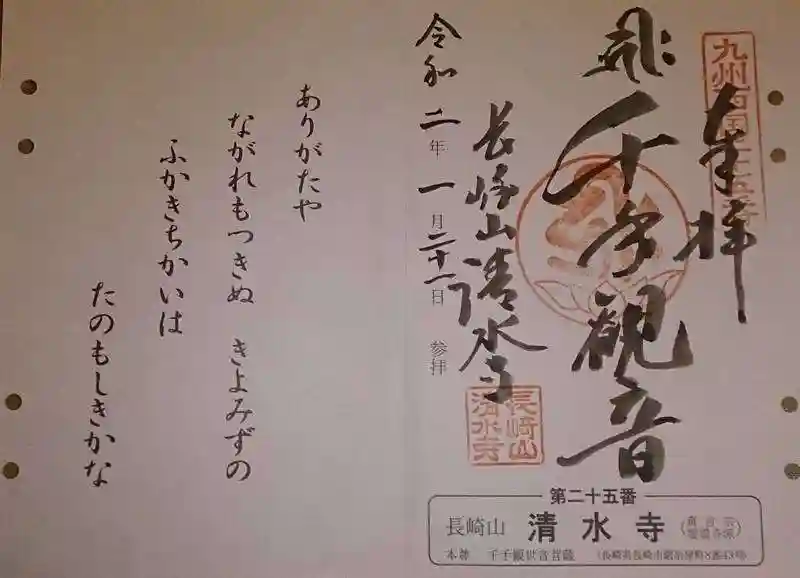 九州西国二十五番
奉拝
千手観音
長崎山清水寺
令和二年一月二十一日 参拝
長崎山
清水寺
ありがたや
ながれもつきぬ きよみずの
ふかきちかいは
たのもしきかな
第二十五番
長崎山 清水寺
本尊 千手観世音菩薩 (長崎県長崎市鍛冶屋町8番43号)